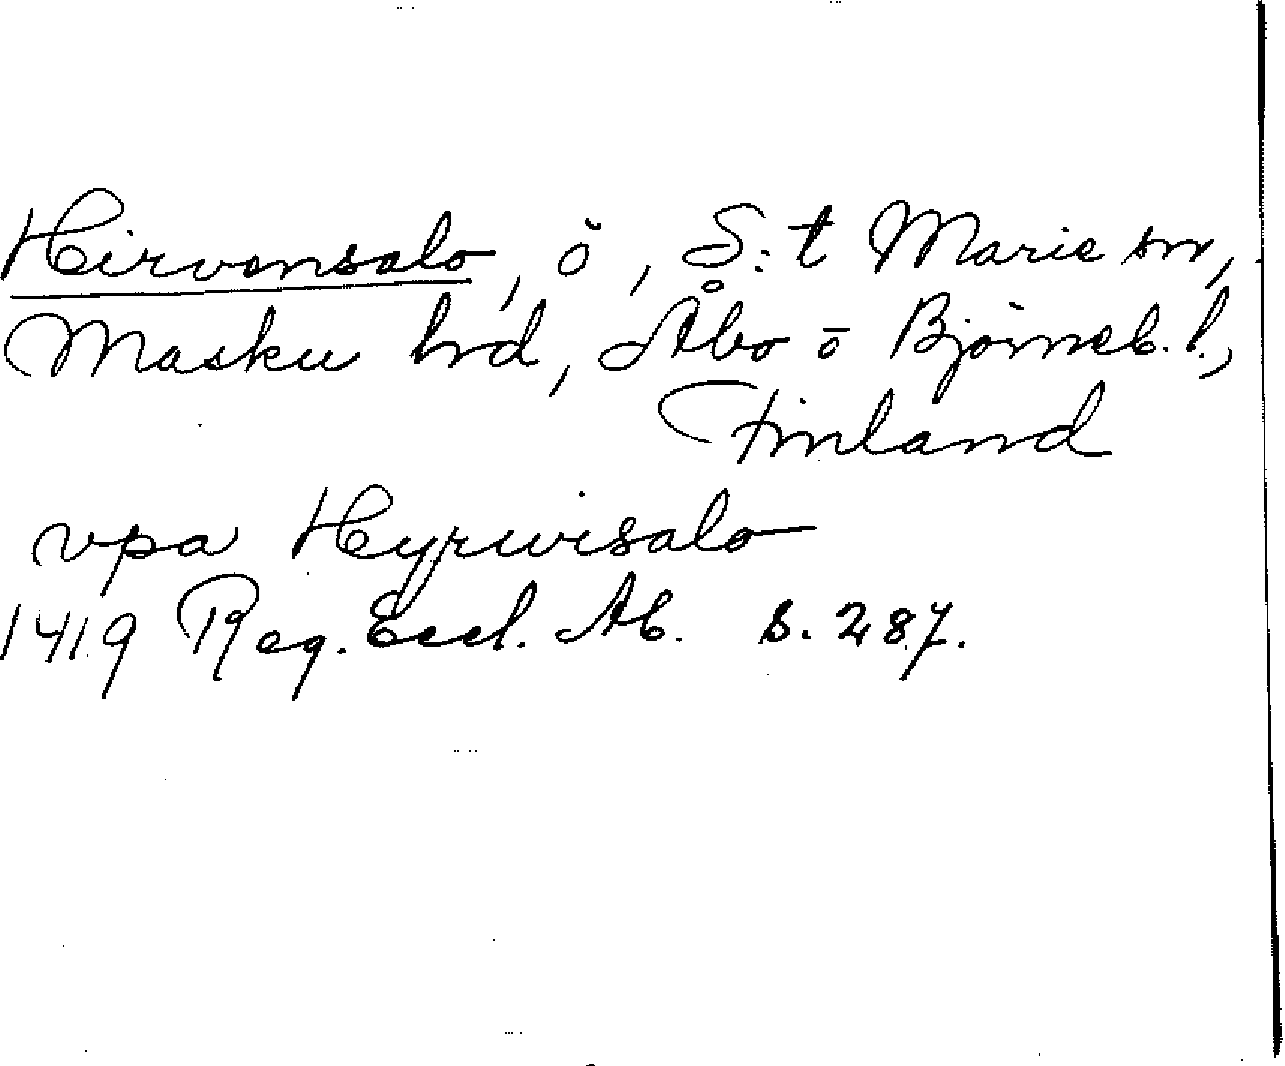 Hirvensalo, ö, S:t Marie sn,
Masku hd, Åbo o Björneb. l.,
Finland
vpa Hyrwisalo
1419 Reg. Eccl. Ab. s. 287.